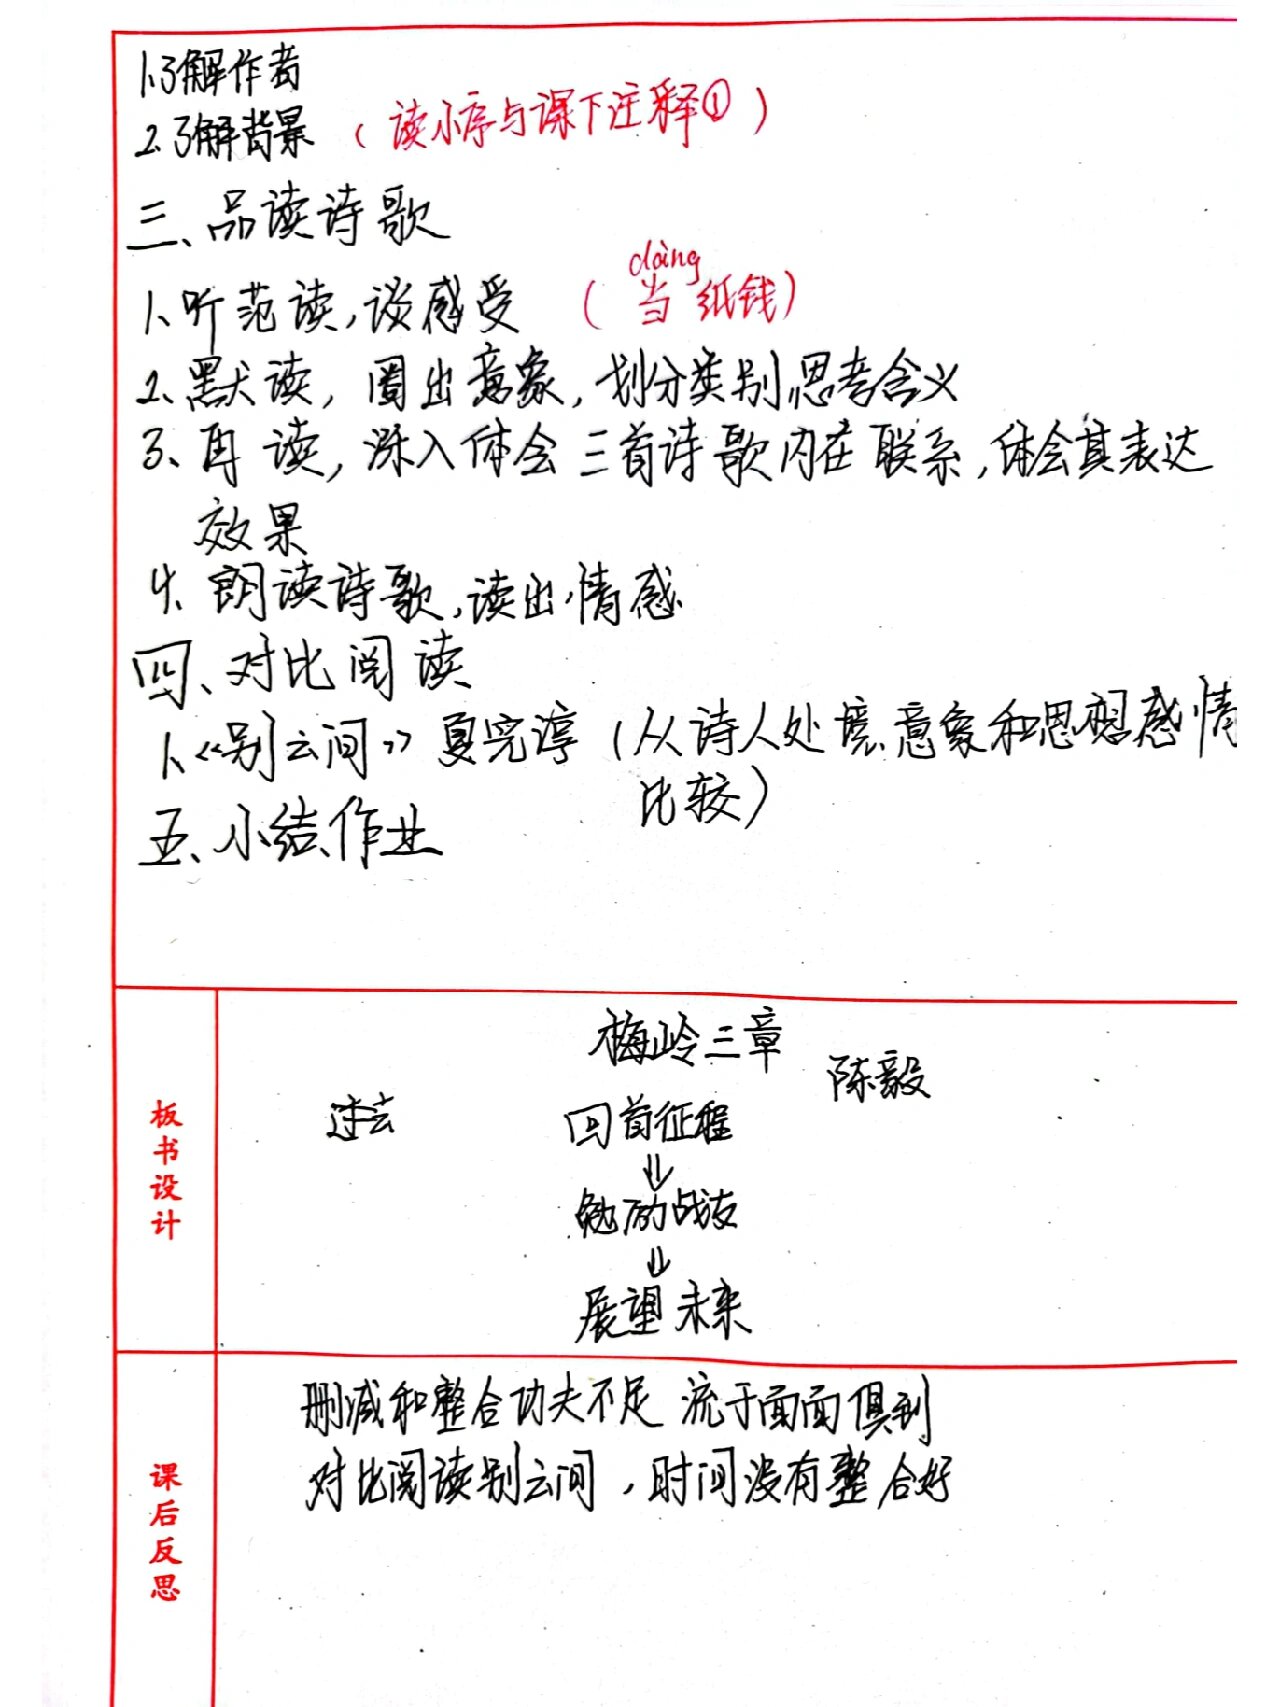 1.了解作者
2.了解背景（读小序与课下注释①）
三、品读诗歌
dàng
1、听范读,谈感受（当纸钱）
2、默读，圈出意象，划分类别思考含义
3、再读，深入体会三首诗歌内在联系，体会其表达
效果
4、朗读诗歌，读出情感
四、对比阅读
1、《别云间》夏完淳（从诗人处境、意象和思想感情
比较）
五、小结、作业
板书设计
梅岭三章
陈毅
过去 回首征程
⇓
勉励战友
⇓
展望未来
课后反思
删减和整合功夫不足 流于面面俱到
对比阅读别云间，时间没有整合好